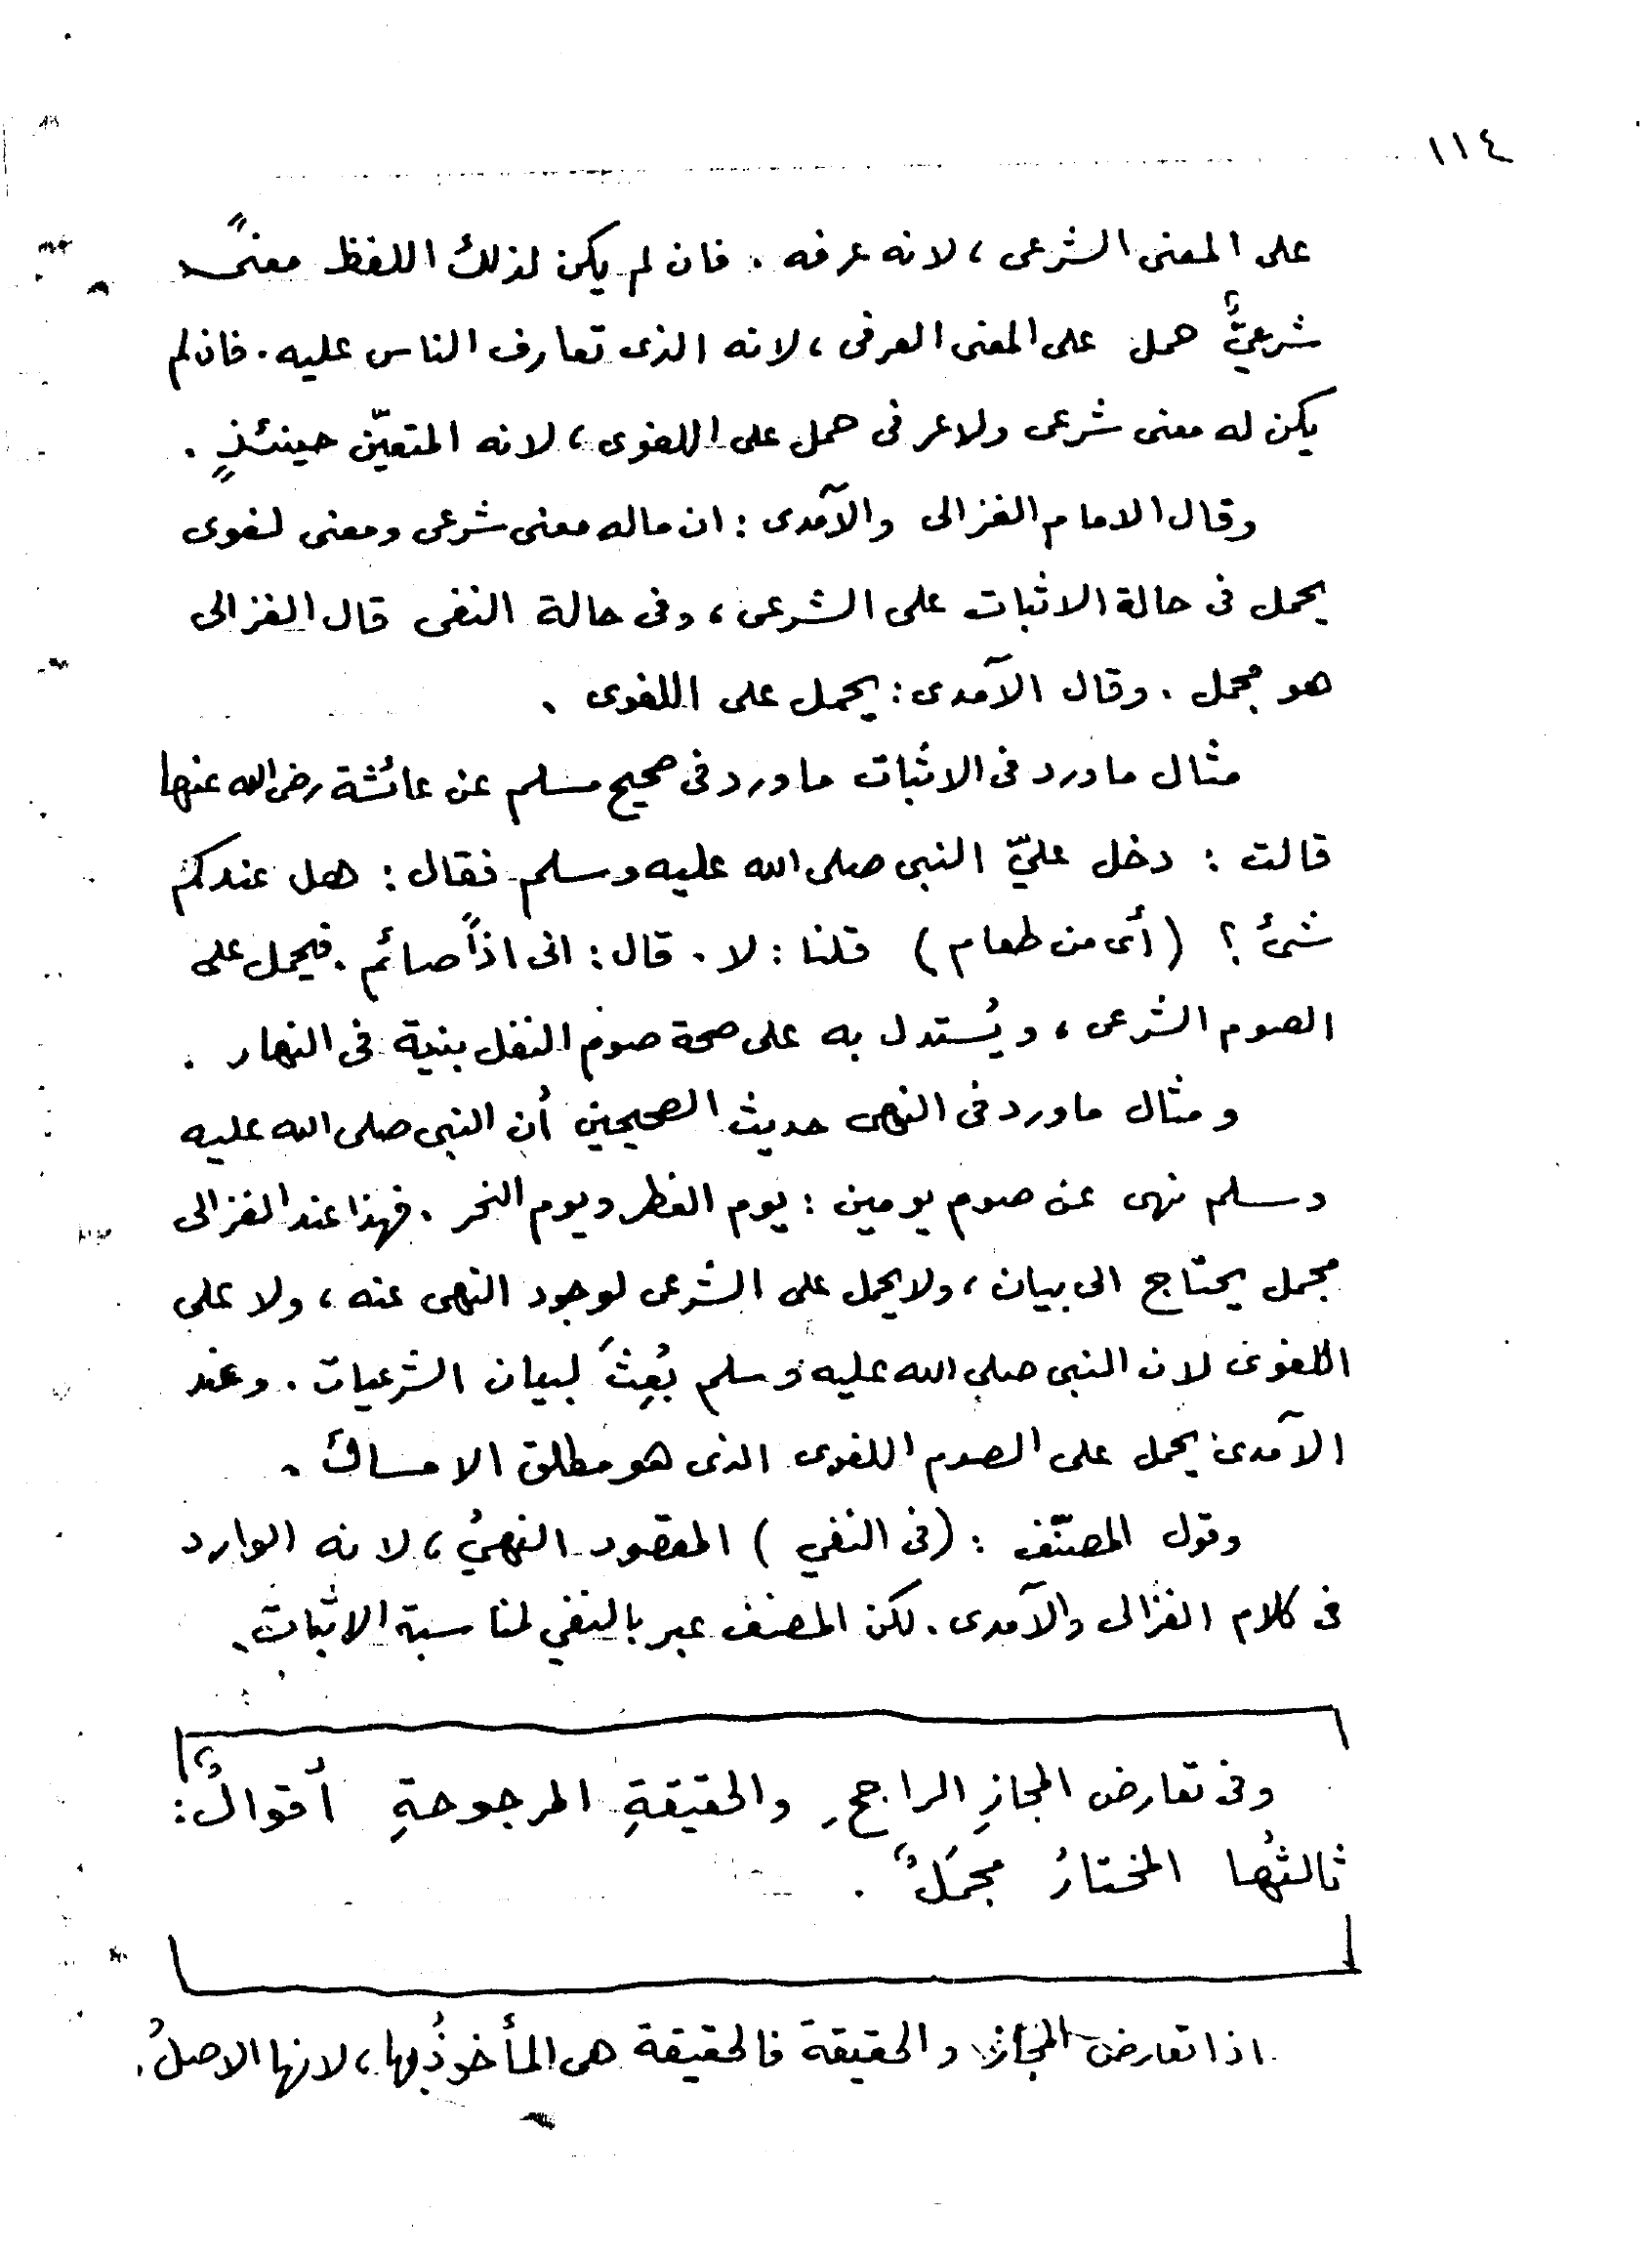 ١١٤
على المعنى الشرعى ، لانه عرفه . فان لم يكن لذلك اللفظ معنىً
شرعيٌّ حمل على المعنى العرفى ، لانه الذى تعارف الناس عليه . فان لم
يكن له معنى شرعى ولا عرفى حمل على اللغوى ، لانه المتعيّن حينئذٍ .
وقال الامام الغزالى والآمدى : ان ماله معنى شرعى ومعنى لغوى
يحمل فى حالة الاثبات على الشرعى ، وفى حالة النفى قال الغزالى
هو مجمل . وقال الآمدى : يحمل على اللغوى .
مثال ما ورد فى الاثبات ما ورد فى صحيح مسلم عن عائشة رضى الله عنها
قالت : دخل عليّ النبى صلى الله عليه وسلم فقال : هل عندكم
شئ ؟ ( أى من طعام ) قلنا : لا . قال : انى اذاً صائم . فيحمل على
الصوم الشرعى ، ويُستدل به على صحة صوم النفل بنية فى النهار .
ومثال ما ورد فى النهى حديث الصحيحين أن النبى صلى الله عليه
وسلم نهى عن صوم يومين : يوم الفطر ويوم النحر . فهذا عند الغزالى
مجمل يحتاج الى بيان ، ولا يحمل على الشرعى لوجود النهى عنه ، ولا على
اللغوى لان النبى صلى الله عليه وسلم بُعِثَ لبيان الشرعيات . وعند
الآمدى يحمل على الصوم اللغوى الذى هو مطلق الامساك .
وقول المصنّف : ( فى النفي ) المقصود النهيُ ، لانه الوارد
فى كلام الغزالى والآمدى . لكن المصنف عبر بالنفي لمناسبة الاثبات .
وفى تعارض المجازِ الراجحِ والحقيقةِ المرجوحةِ أقوالٌ :
ثالثُها المختارُ مجمَلٌ .
اذا تعارض المجازُ والحقيقة فالحقيقة هى المأخوذُ بها ، لانها الاصلُ .